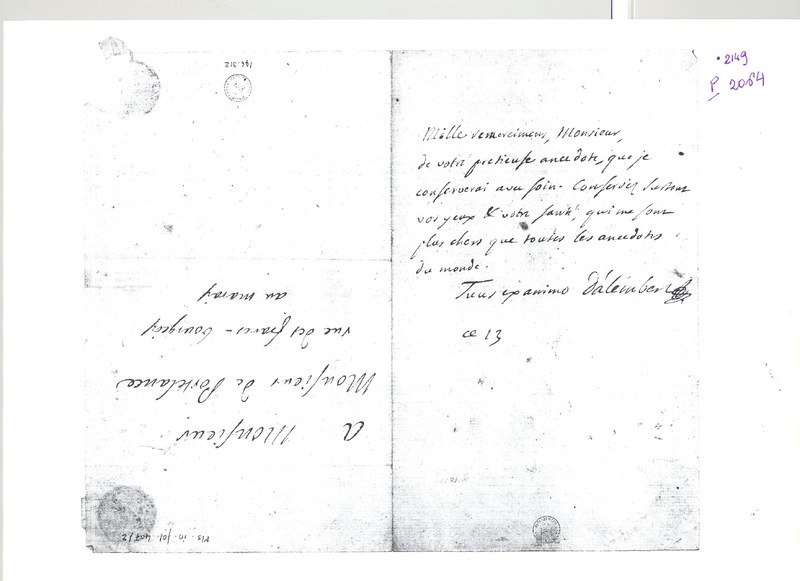 2149
P 2064
Mille remercimens, Monsieur,
de votre pretieuse anecdote, que je
conserverai avec soin. Conservez surtout
vos yeux & votre santé, qui me sont
plus chers que toutes les anecdotes
du monde.
Tuus ex animo D'alembert
ce 13
A Monsieur
Monsieur de Portelance
rue des francs-bourgeois
au marais